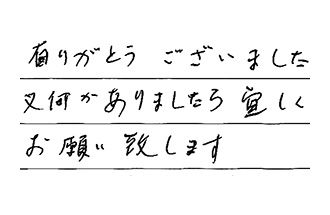 有りがとう ございました
又何かありましたら 宜しく
お願い 致します